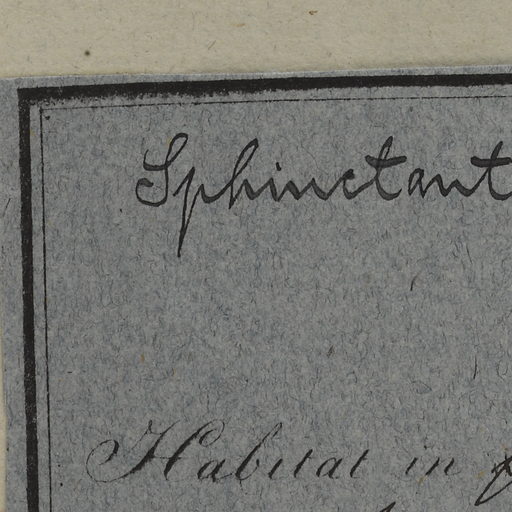 Sphinctant
Habitat in